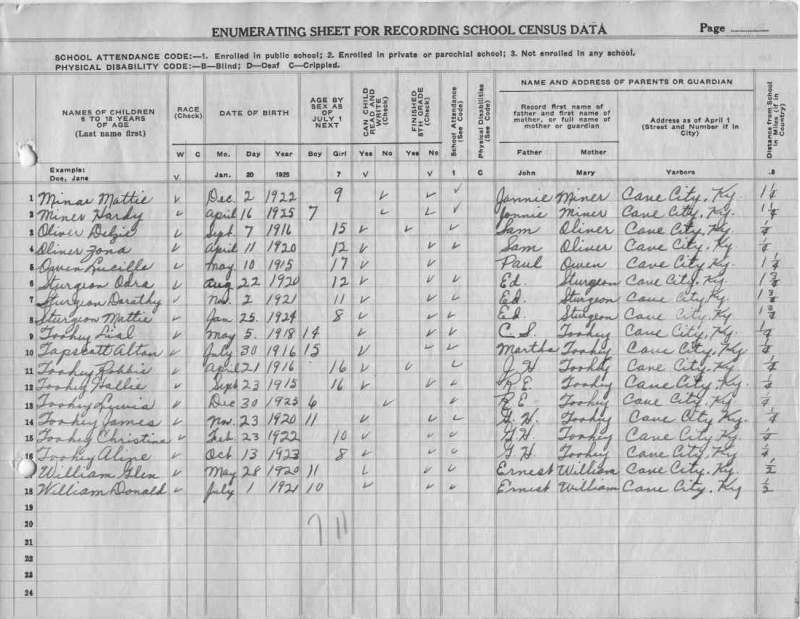 ENUMERATING SHEET FOR RECORDING SCHOOL CENSUS DATA Page
SCHOOL ATTENDANCE CODE:—1. Enrolled in public school; 2. Enrolled in private or parochial school; 3. Not enrolled in any school.
PHYSICAL DISABILITY CODE:—B—Blind; D—Deaf C—Crippled.
NAMES OF CHILDREN
6 TO 18 YEARS
OF AGE
(Last name first)
RACE
(Check)
DATE OF BIRTH
AGE BY
SEX AS
OF
JULY 1
NEXT
CAN CHILD
READ AND
WRITE
(Check)
FINISHED
8TH GRADE
(Check)
School Attendance
(See Code)
Physical Disabilities
(See Code)
NAME AND ADDRESS OF PARENTS OR GUARDIAN
Record first name of
father and first name of
mother, or full name of
mother or guardian
Address as of April 1
(Street and Number if in
City)
Distance from School
in Miles (if in
Country)
W C Mo. Day Year Boy Girl Yes No Yes No Father Mother
Example:
Doe, Jane V. Jan. 20 1925 7 V V 1 C John Mary Yarbors .8
1 Minar Mattie ✓ Dec. 2 1922 9 ✓ ✓ ✓ Jonnie Miner Cave City, Ky. 1 1/4
2 Miner Hardy ✓ April 16 1925 7 ✓ ✓ ✓ Jonnie Miner Cave City, Ky. 1 1/4
3 Oliver Delzie ✓ Sept 7 1916 15 ✓ ✓ ✓ Sam Oliver Cave City, Ky. 1/4
4 Oliver Zona ✓ April 11 1920 12 ✓ ✓ ✓ Sam Oliver Cave City, Ky. 1/4
5 Owen Lucille ✓ May 10 1915 17 ✓ ✓ Paul Owen Cave City, Ky. 1 1/4
6 Sturgeon Oara ✓ Aug 22 1920 12 ✓ ✓ ✓ Ed. Sturgeon Cave City, Ky. 1 3/4
7 Sturgeon Dorathy ✓ Nov. 2 1921 11 ✓ ✓ ✓ Ed. Sturgeon Cave City, Ky. 1 3/4
8 Sturgeon Mattie ✓ Jan 25. 1924 8 ✓ ✓ ✓ Ed Sturgeon Cave City, Ky. 1 3/4
9 Toohey Lial ✓ May 5. 1918 14 ✓ ✓ ✓ C.S. Toohey Cave City, Ky.
10 Tapscott Alton ✓ July 30 1916 15 ✓ ✓ ✓ Martha Toohey Cave City, Ky 1/4
11 Toohey Robbie ✓ April 21 1916 16 ✓ ✓ ✓ J H Toohey Cave City, Ky. 1/4
12 Toohey Hallie ✓ Sept 23 1915 16 ✓ ✓ ✓ R.E. Toohey Cave City, Ky.
13 Toohey ✓ Dec 30 1925 6 ✓ ✓ R E Toohey Cave City, Ky.
14 Toohey James ✓ Nov. 23 1920 11 ✓ ✓ ✓ G. H. Toohey Cave City, Ky. 1/4
15 Toohey Christina ✓ Feb. 23 1922 10 ✓ ✓ ✓ G.H. Toohey Cave City, Ky. 1/4
16 Toohey Aline ✓ Oct 13 1923 8 ✓ ✓ ✓ G H Toohey Cave City, Ky 1/4
17 William Glen ✓ May 28 1920 11 ✓ ✓ ✓ Ernest William Cave City, Ky. 1/2
18 William Donald ✓ July 1 1921 10 ✓ ✓ ✓ Ernest William Cave City, Ky 1/2
19
20 7 11
21
22
23
24